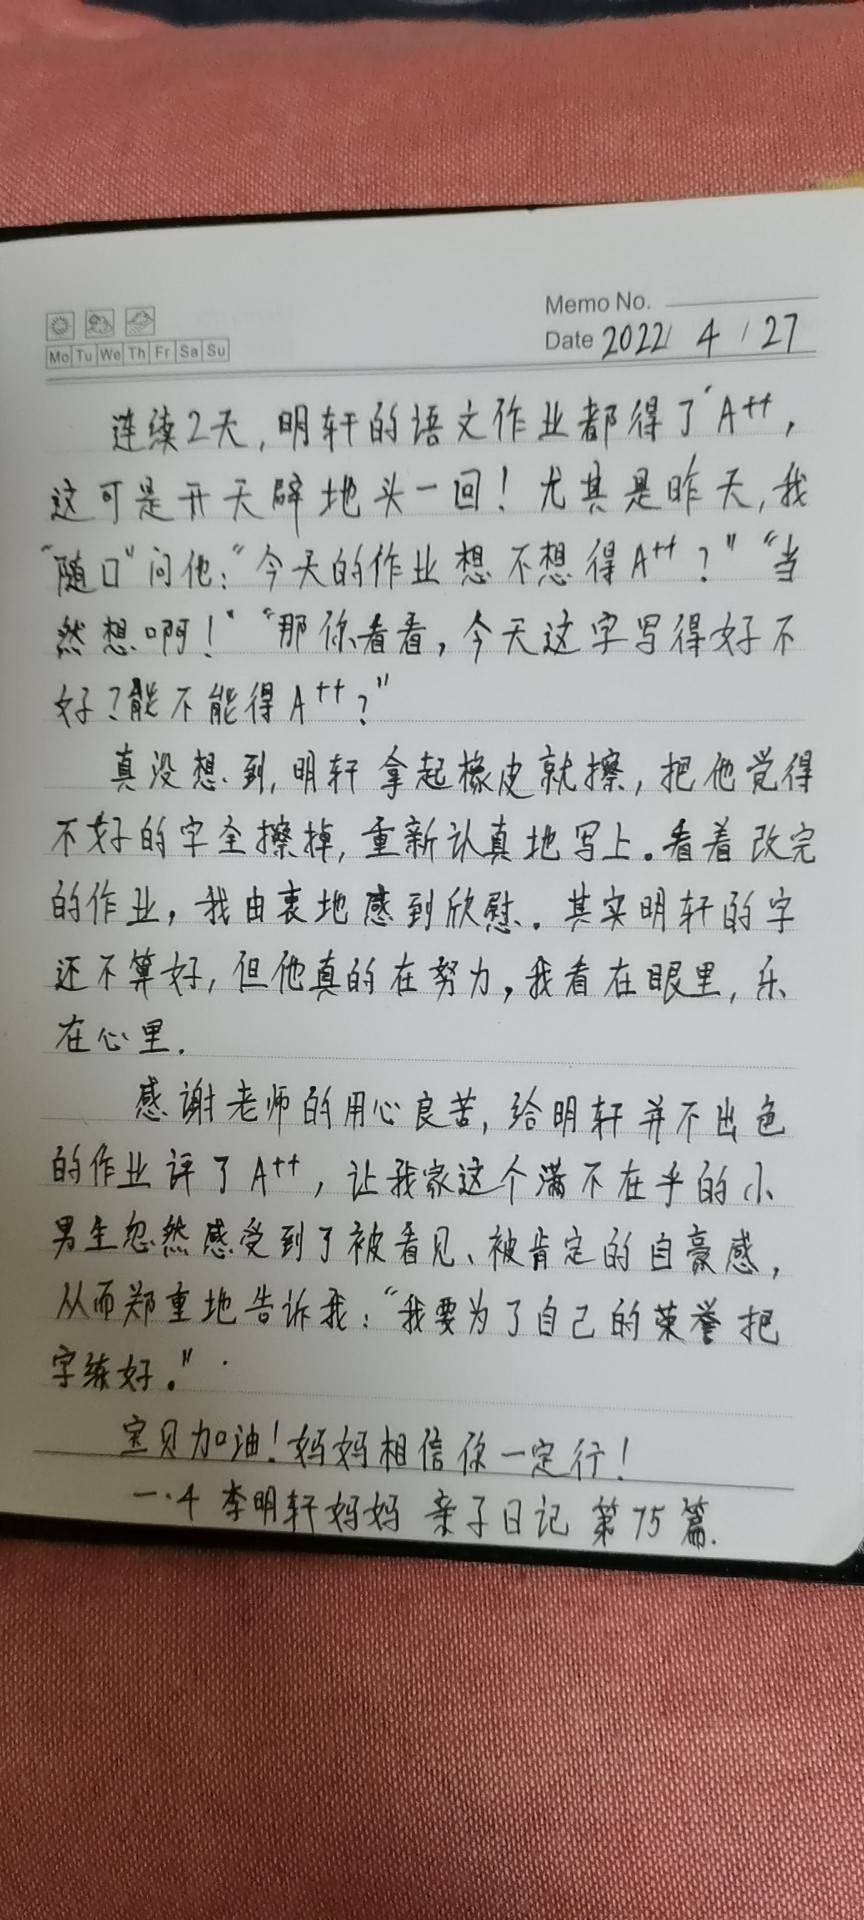 Memo No.
Mo Tu We Th Fr Sa Su
Date 2022 / 4 / 27
连续2天,明轩的语文作业都得了“A++,
这可是开天辟地头一回!尤其是昨天,我
“随口”问他:“今天的作业想不想得A++?”“当
然想啊!”“那你看看,今天这字写得好不
好?能不能得A++?”
真没想到,明轩拿起橡皮就擦,把他觉得
不好的字全擦掉,重新认真地写上。看着改完
的作业,我由衷地感到欣慰。其实明轩的字
还不算好,但他真的在努力,我看在眼里,乐
在心里.
感谢老师的用心良苦,给明轩并不出色
的作业评了A++,让我家这个满不在乎的小
男生忽然感受到了被看见、被肯定的自豪感,
从而郑重地告诉我:“我要为了自己的荣誉把
字练好。”
宝贝加油!妈妈相信你一定行!
一.4 李明轩妈妈 亲子日记 第75篇.